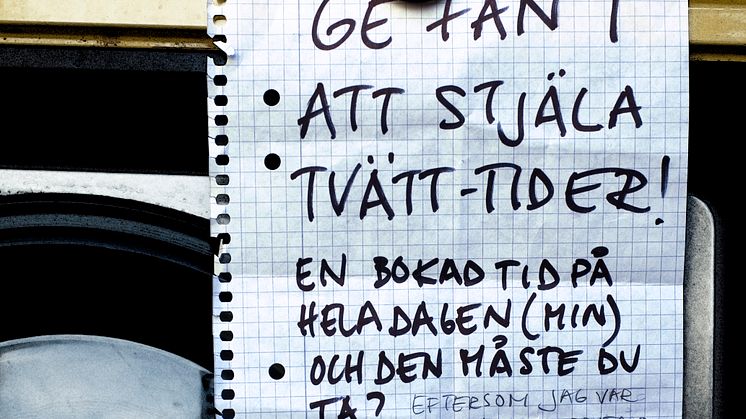 GE FAN I
ATT STJÄLA
TVÄTT-TIDER!
EN BOKAD TID PÅ
HELA DAGEN (MIN)
OCH DEN MÅSTE DU
TA? EFTERSOM JAG VAR